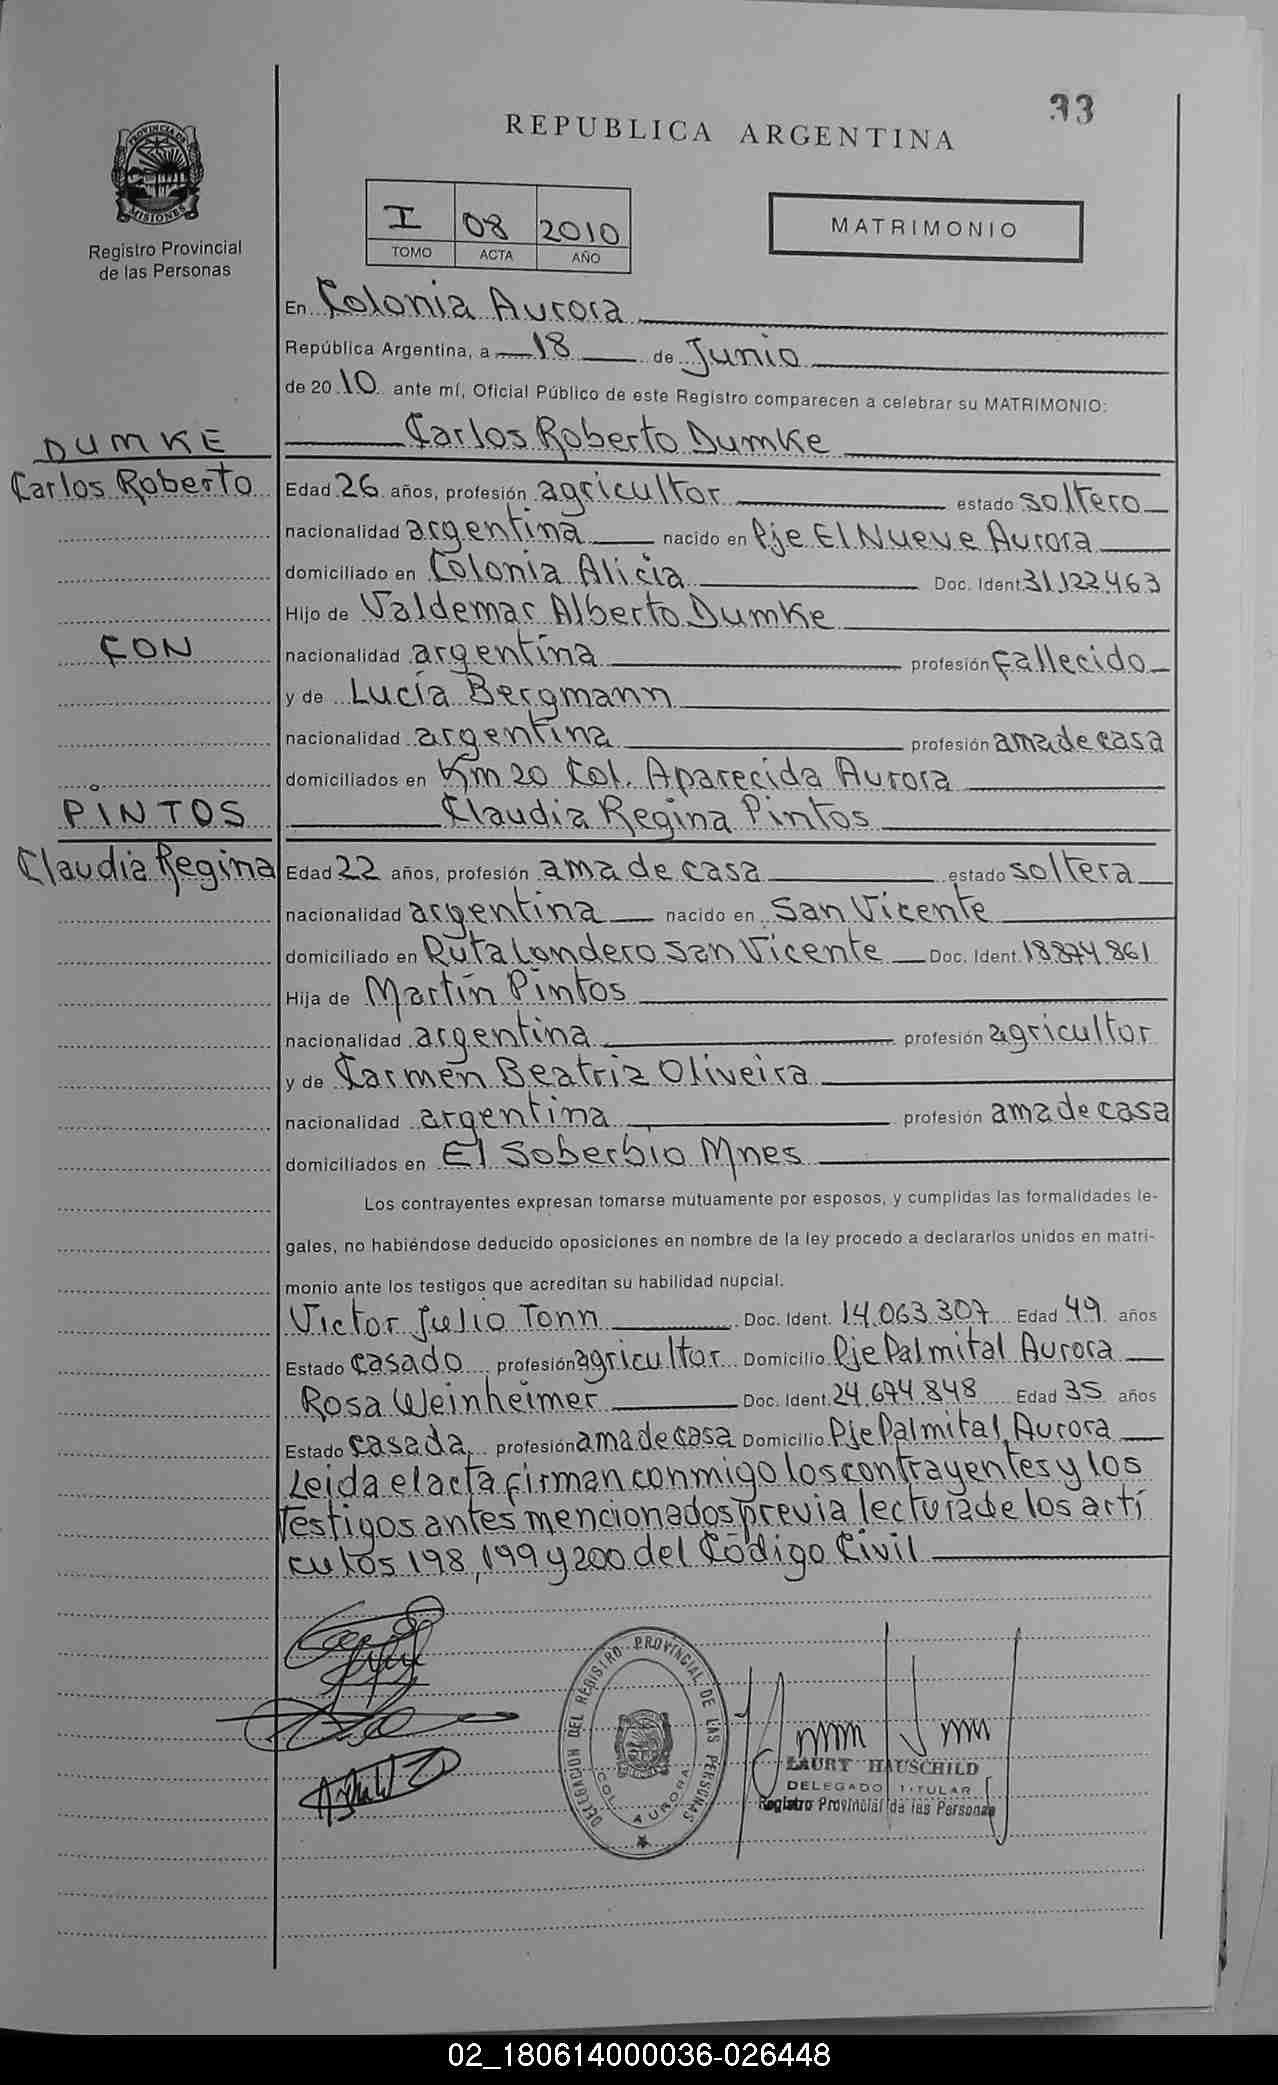 33
REPUBLICA ARGENTINA
PROVINCIA DE
MISIONES
Registro Provincial
de las Personas
I 08 2010
TOMO ACTA AÑO
MATRIMONIO
En Colonia Aurora
República Argentina, a 18 de Junio
de 2010 ante mí, Oficial Público de este Registro comparecen a celebrar su MATRIMONIO:
DUMKE
Carlos Roberto
CON
PINTOS
Claudia Regina
Carlos Roberto Dumke
Edad 26 años, profesión agricultor estado soltero
nacionalidad argentina nacido en Pje El Nueve Aurora
domiciliado en Colonia Alicia Doc. Ident. 31.122.463
Hijo de Valdemar Alberto Dumke
nacionalidad argentina profesión fallecido
y de Lucía Bergmann
nacionalidad argentina profesión ama de casa
domiciliados en Km 20 Col. Aparecida Aurora
Claudia Regina Pintos
Edad 22 años, profesión ama de casa estado soltera
nacionalidad argentina nacido en San Vicente
domiciliado en Ruta Londero San Vicente Doc. Ident. 18.874.861
Hija de Martín Pintos
nacionalidad argentina profesión agricultor
y de Carmen Beatriz Oliveira
nacionalidad argentina profesión ama de casa
domiciliados en El Soberbio Mnes
Los contrayentes expresan tomarse mutuamente por esposos, y cumplidas las formalidades le-
gales, no habiéndose deducido oposiciones en nombre de la ley procedo a declararlos unidos en matri-
monio ante los testigos que acreditan su habilidad nupcial.
Victor Julio Tonn Doc. Ident. 14.063.307 Edad 49 años
Estado casado profesión agricultor Domicilio Pje Palmital Aurora
Rosa Weinheimer Doc. Ident. 24.674.848 Edad 35 años
Estado casada profesión ama de casa Domicilio Pje Palmital Aurora
Leida el acta firman conmigo los contrayentes y los
testigos antes mencionados previa lectura de los artí
culos 198, 199 y 200 del Código Civil
DELEGACION DEL REGISTRO PROVINCIAL DE LAS PERSONAS
COL. AURORA
LAURY HAUSCHILD
DELEGADO TITULAR
Registro Provincial de las Personas
02_180614000036-026448